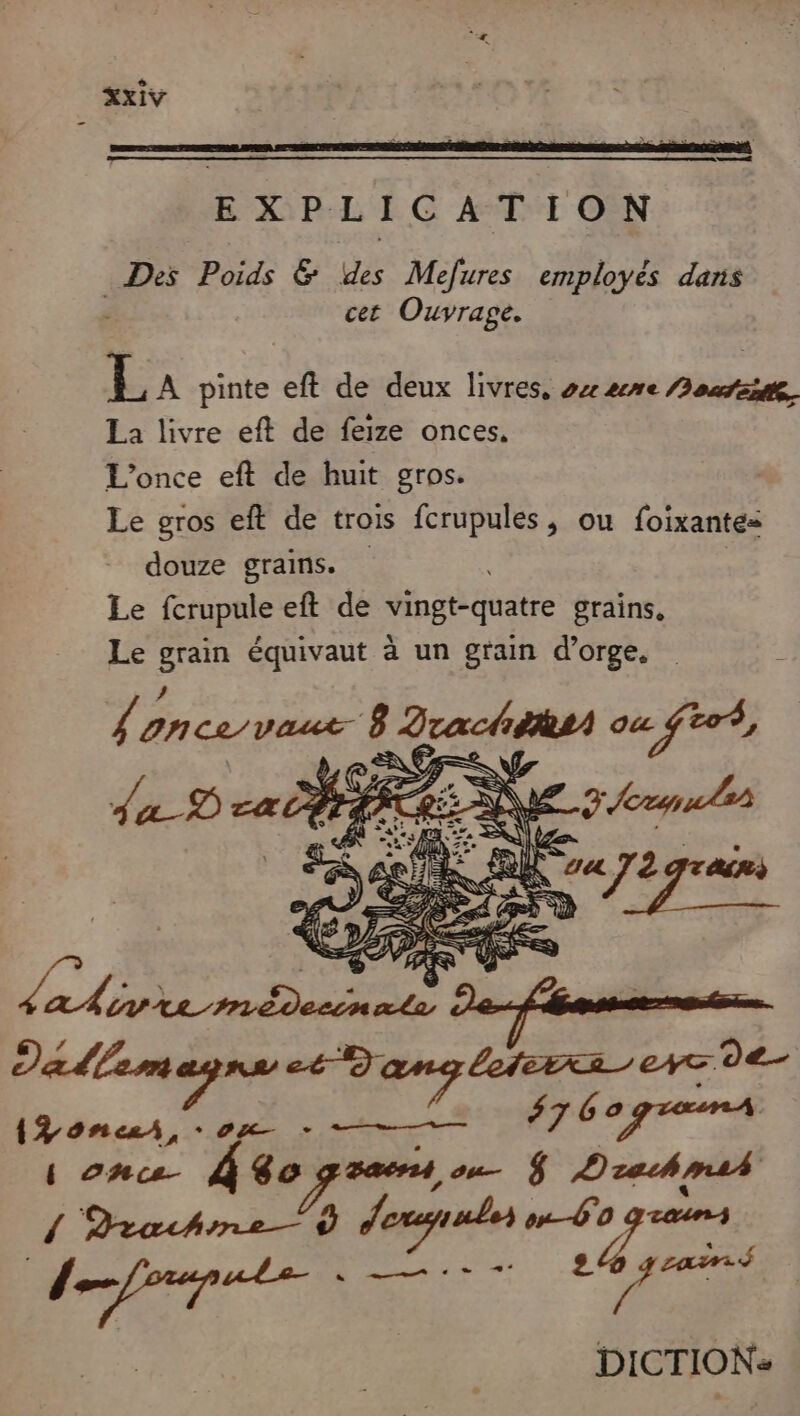 xxiv
EXPLICATION
Des Poids & des Meſures employés dans
cet Ouvrage.
LA pinte eſt de deux livres, ou une
La livre eſt de ſeize onces.
L'once eſt de huit gros.
Le gros eſt de trois ſcrupules, ou ſoixante-
douze grains.
Le ſcrupule eſt de vingt-quatre grains.
Le grain équivaut à un grain d'orge.
L'once vaut 8 Drachmes ou gros,
la Drachme 3 ſcrupules
ou 72 grains
La livre médecinale De
D'allemagne et D'angleterre eſt De
12 onces, ou 5760 grains
1 once 480 grains, ou 8 Drachmes
1 Drachme 3 ſcrupules ou 60 grains
le ſcrupule grains
DICTION-